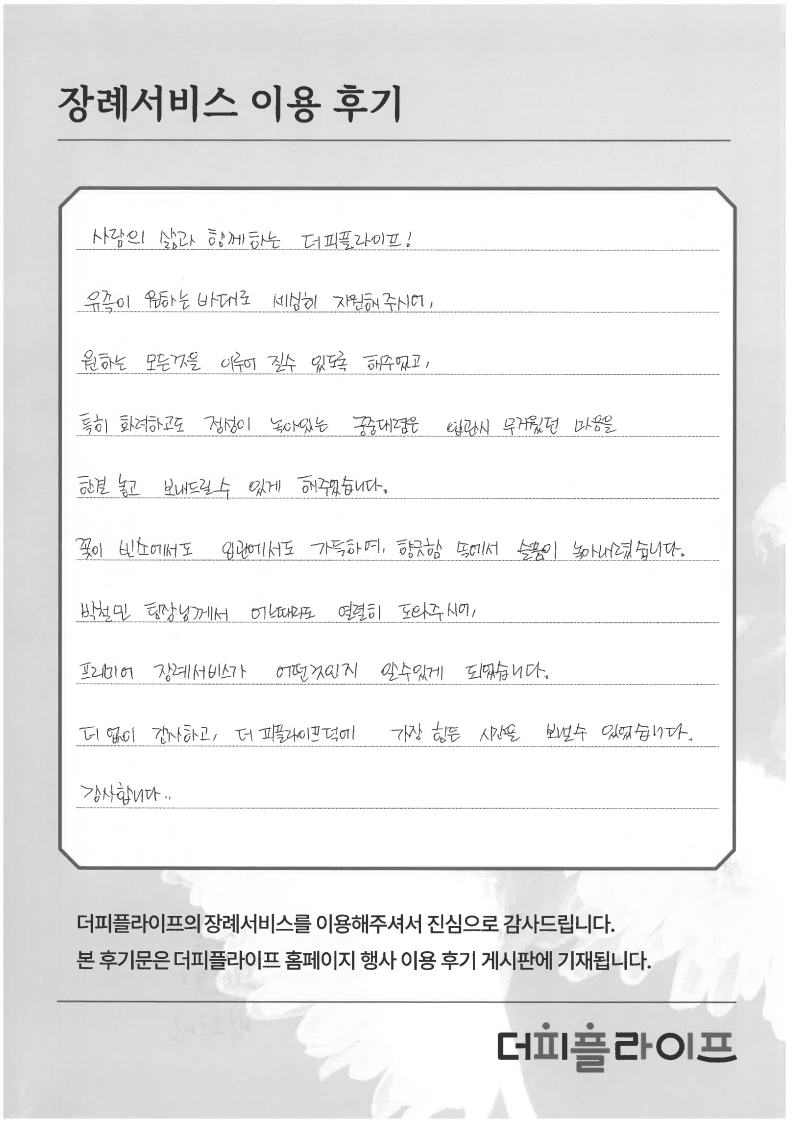 장례서비스 이용 후기
사람의 삶과 함께하는 더피플라이프!
유족이 원하는 바대로 세심히 지원해 주시어,
원하는 모든것을 이루어 질수 있도록 해주었고,
특히 화려하고도 정성이 녹아있는 궁중대렴은 입관시 무거웠던 마음을
한결 놓고 보내드릴수 있게 해주었습니다.
꽃이 빈소에서도 입관에서도 가득하여, 향긋함 속에서 슬픔이 녹아내렸습니다.
박철민 팀장님께서 어느때라도 열렬히 도와주시어,
프리미어 장례서비스가 어떤것인지 알수있게 되었습니다.
더 없이 감사하고, 더 피플라이프덕에 가장 힘든 시간을 보낼수 있었습니다.
감사합니다..
더피플라이프의 장례서비스를 이용해주셔서 진심으로 감사드립니다.
본 후기문은 더피플라이프 홈페이지 행사 이용 후기 게시판에 기재됩니다.
더피플라이프